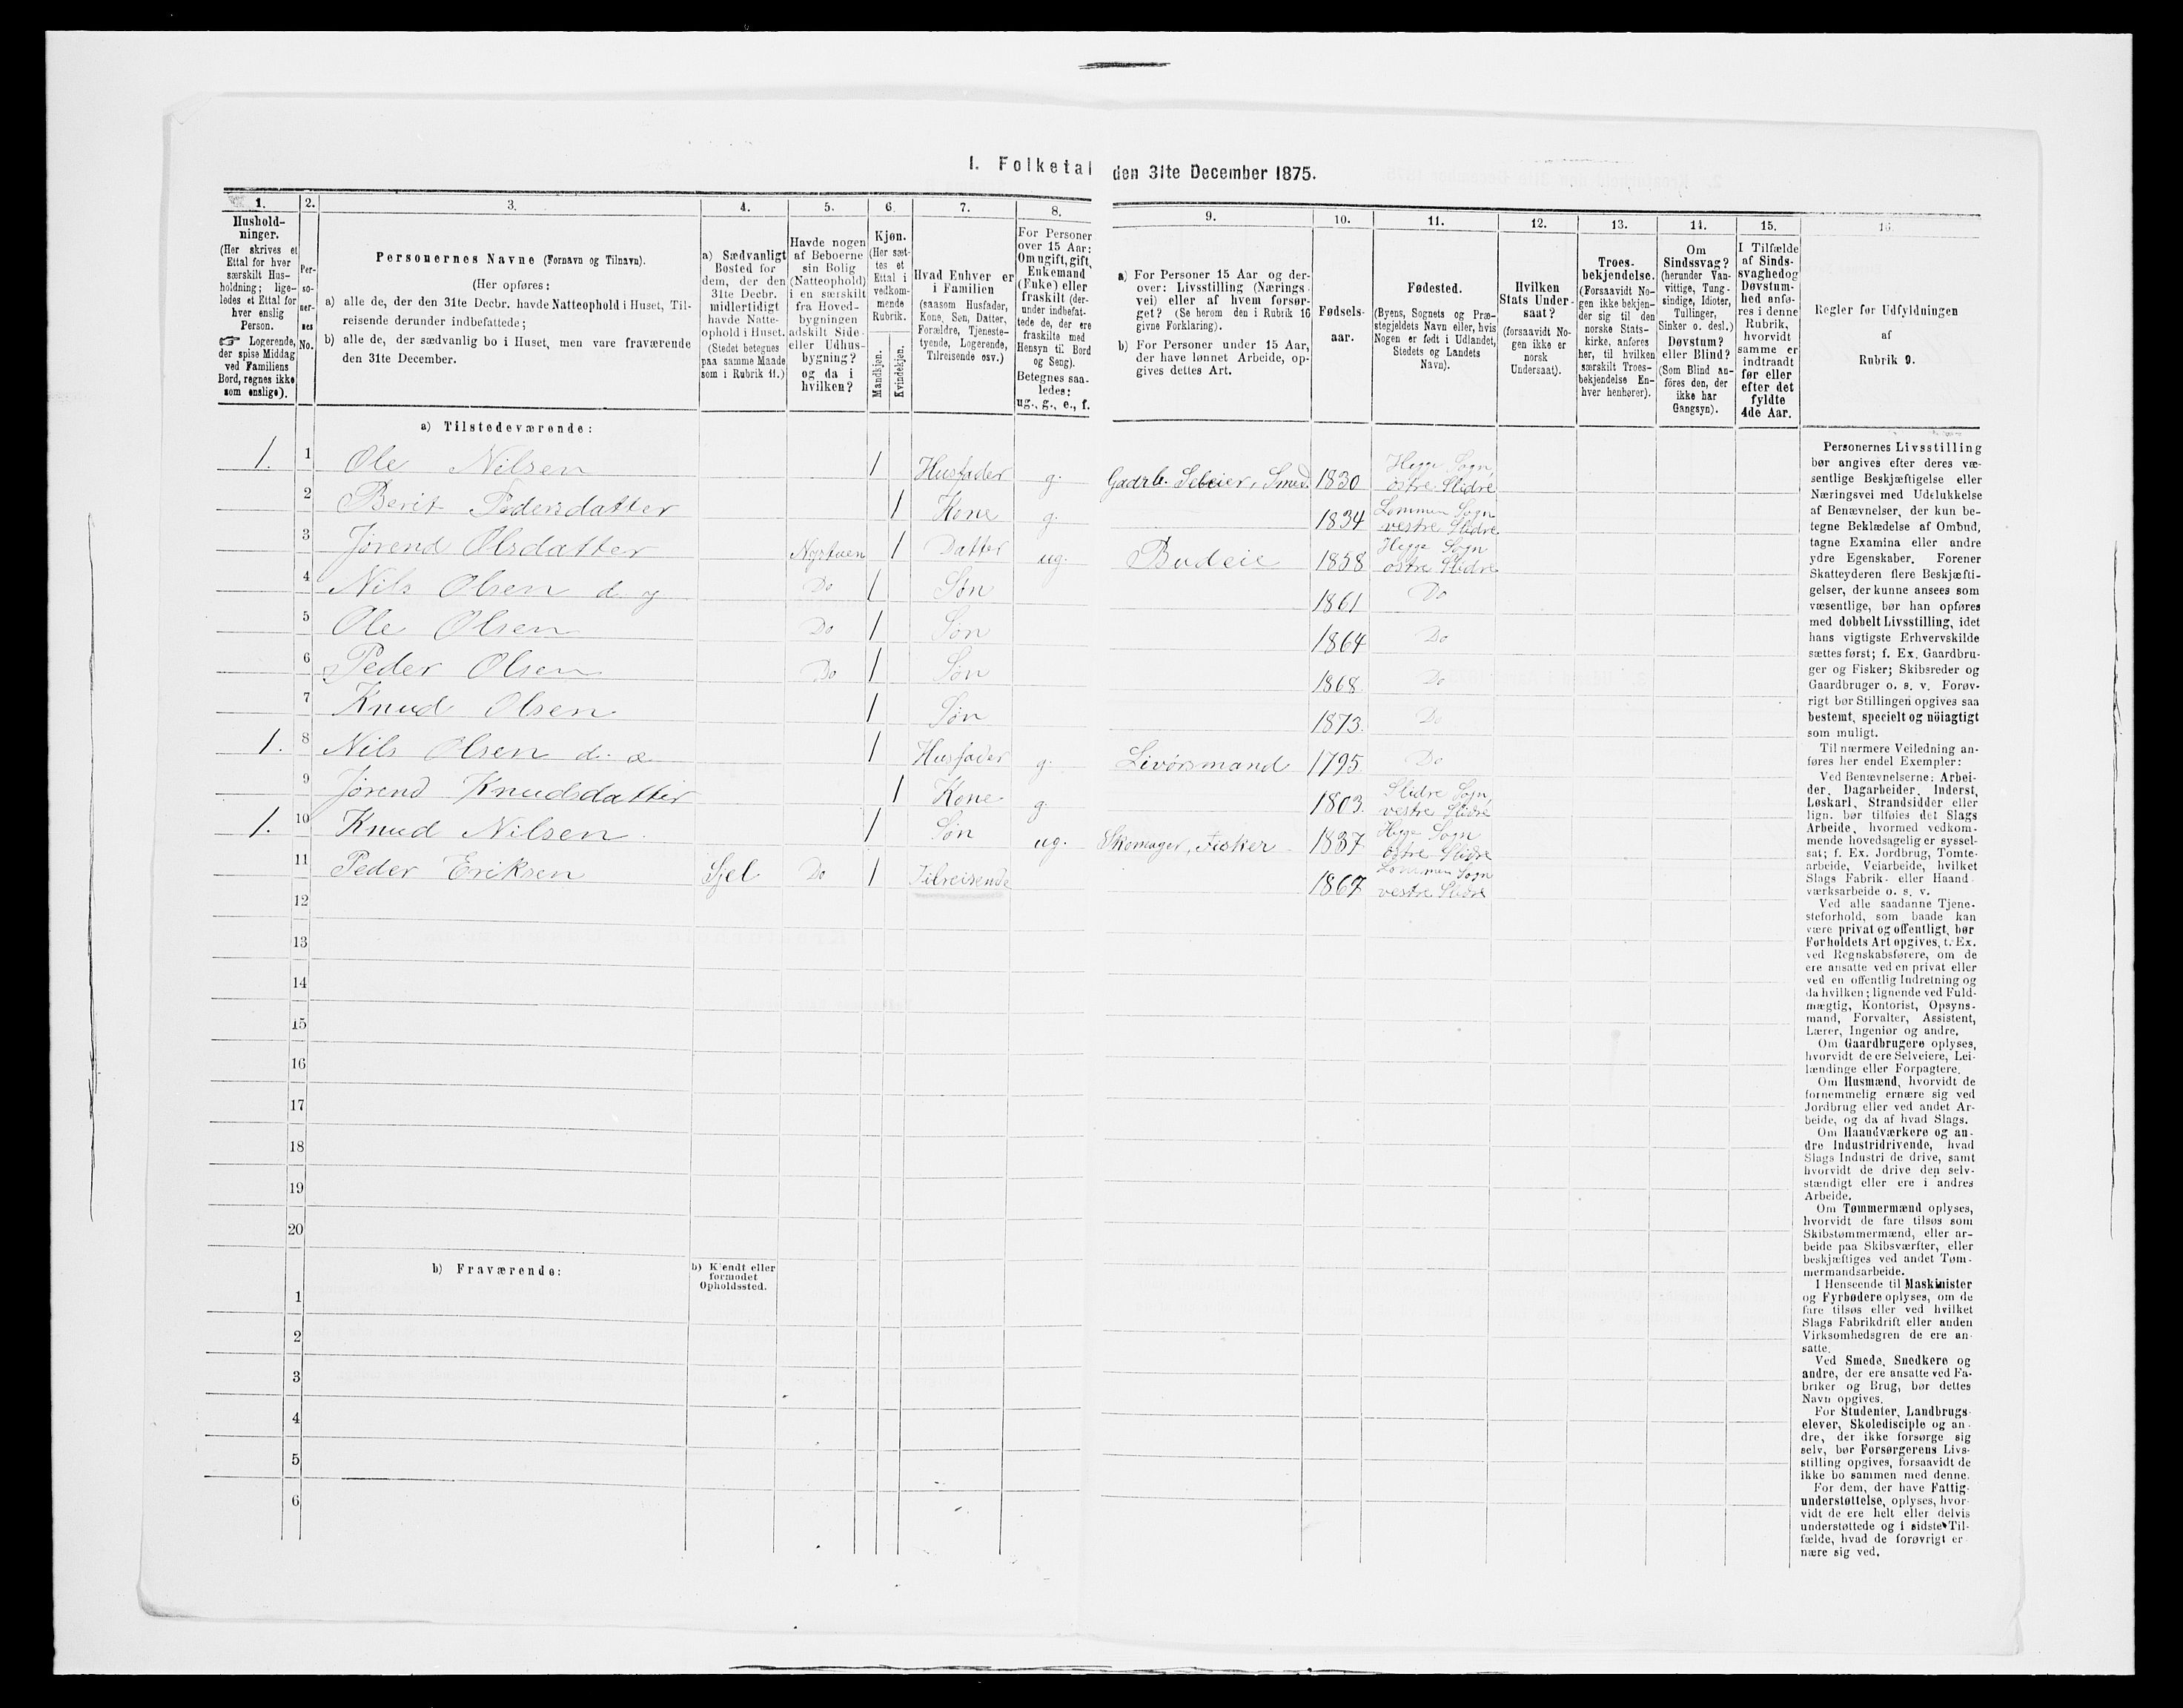 I. Folketal den 31te December 1875.
1.
Hushold-
ninger.
(Her skrives et
Ettal for hver
særskilt Hus-
holdning; lige-
ledes et Ettal for
hver enslig
Person.
☞ Logerende,
der spise Middag
ved Familiens
Bord, regnes ikke
som enslige).
2.
Per-
so-
ner-
nes
No.
3.
Personernes Navne (Fornavn og Tilnavn).
(Her opføres:
a) alle de, der den 31te Decbr. havde Natteophold i Huset, Til-
reisende derunder indbefattede;
b) alle de, der sædvanlig bo i Huset, men vare fraværende
den 31te December.
4.
a) Sædvanligt
Bosted for
dem, der den
31te Decbr.
midlertidigt
havde Natte-
ophold i Huset.
(Stedet betegnes
paa samme Maade
som i Rubrik 11.)
5.
Havde nogen
af Beboerne
sin Bolig
(Natteophold)
i en særskilt
fra Hoved-
bygningen
adskilt Side-
eller Udhus-
bygning?
og da i
hvilken?
6.
Kjøn.
(Her sæt-
tes et
Ettal i
vedkom-
mende
Rubrik.
Mandkjøn.
Kvindekjøn.
7.
Hvad Enhver er
i Familien
(saasom Husfader,
Kone, Søn, Datter,
Forældre, Tjeneste-
tyende, Logerende,
Tilreisende osv.)
8.
For Personer
over 15 Aar:
Om ugift, gift,
Enkemand
(Enke) eller
fraskilt (der-
under indbefat-
tede de, der ere
fraskilte med
Hensyn til Bord
og Seng).
Betegnes saa-
ledes:
ug., g., e., f.
9.
a) For Personer 15 Aar og der-
over: Livsstilling (Nærings-
vei) eller af hvem forsør-
get? (Se herom den i Rubrik 16
givne Forklaring).
b) For Personer under 15 Aar,
der have lønnet Arbeide, op-
gives dettes Art.
10.
Fødsels-
aar.
11.
Fødested.
(Byens, Sognets og Præ-
stegjeldets Navn eller, hvis
Nogen er født i Udlandet,
Stedets og Landets
Navn).
12.
Hvilken
Stats Under-
saat?
(forsaavidt No-
gen ikke er
norsk
Undersaat).
13.
Troes-
bekjendelse.
(Forsaavidt No-
gen ikke bekjen-
der sig til den
norske Stats-
kirke, anføres
her, til hvilken
særskilt Troes-
bekjendelse En-
hver henhører).
14.
Om
Sindssvag?
(herunder Van-
vittige, Tung-
sindige, Idioter,
Tullinger,
Sinker o. desl.)
Døvstum?
eller Blind?
(Som Blind an-
føres den, der
ikke har
Gangsyn).
15.
I Tilfælde
af Sinds-
svaghed og
Døvstum-
hed anfø-
res i denne
Rubrik,
hvorvidt
samme er
indtraadt
før eller
efter det
fyldte
4de Aar.
16.
Regler for Udfyldningen
af
Rubrik 9.
a) Tilstedeværende:
1. 1 Ole Nilsen 1 Husfader g. Gadrb. Seleier, Smed. 1830 Hegge Sogn østre Slidre
2 Berit Pedersdatter 1 Kone g. 1834 Lommen Sogn vestre Slidre
3 Jørend Olsdatter Nystuen 1 Datter ug. Budeie 1858 Hegge Sogn østre Slidre
4 Nils Olsen d. y Do 1 Søn 1861 Do
5 Ole Olsen Do 1 Søn 1864 Do
6 Peder Olsen Do 1 Søn 1868. Do
7 Knud Olsen 1 Søn 1873. Do
1. 8 Nils Olsen d. æ 1 Husfader g. Livørsmand 1795. Do
9 Jørend Knudsdatter 1 Kone g. 1803. Slidre Sogn, vestre Slidre
1. 10 Knud Nilsen. 1 Søn ug. Skomager, Fisker 1837 Hegge Sogn østre Slidre
11 Peder Eriksen Sjel Do 1 Tilreisende 1867 Lommen Sogn vestre Slidre
12
13
14
15
16
17
18
19
20
b) Fraværende:
b) Kjendt eller
formodet
Opholdssted.
1
2
3
4
5
6
Personernes Livsstilling
bør angives efter deres væ-
sentlige Beskjæftigelse eller
Næringsvei med Udelukkelse
af Benævnelser, der kun be-
tegne Beklædelse af Ombud,
tagne Examina eller andre
ydre Egenskaber. Forener
Skatteyderen flere Beskjæfti-
gelser, der kunne ansees som
væsentlige, bør han opføres
med dobbelt Livsstilling, idet
hans vigtigste Erhvervskilde
sættes først; f. Ex. Gaardbru-
ger og Fisker; Skibsreder og
Gaardbruger o. s. v. Forøv-
rigt bør Stillingen opgives saa
bestemt, specielt og nöiagtigt
som muligt.
Til nærmere Veiledning an-
føres her endel Exempler:
Ved Benævnelserne: Arbei-
der, Dagarbeider, Inderst,
Løskarl, Strandsidder eller
lign. bør tilføies det Slags
Arbeide, hvormed vedkom-
mende hovedsagelig er syssel-
sat; f. Ex. Jordbrug, Tomte-
arbeide, Veiarbeide, hvilket
Slags Fabrik- eller Haand-
værksarbeide o. s. v.
Ved alle saadanne Tjene-
steforhold, som baade kan
være privat og offentligt, bør
Forholdets Art opgives, t. Ex.
ved Regnskabsførere, om de
ere ansatte ved en privat eller
ved en offentlig Indretning og
da hvilken; lignende ved Fuld-
mægtig, Kontorist, Opsyns-
mand, Forvalter, Assistent,
Lærer, Ingeniør og andre.
Om Gaardbrugere oplyses,
hvorvidt de ere Selveiere, Lei-
lændinge eller Forpagtere.
Om Husmænd, hvorvidt de
fornemmelig ernære sig ved
Jordbrug eller ved andet Ar-
beide, og da af hvad Slags.
Om Haandværkere og an-
dre Industridrivende, hvad
Slags Industri de drive, samt
hvorvidt de drive den selv-
stændigt eller ere i andres
Arbeide.
Om Tømmermænd oplyses,
hvorvidt de fare tilsøs som
Skibstømmermænd, eller ar-
beide paa Skibsværfter, eller
beskjæftiges ved andet Tøm-
mermandsarbeide.
I Henseende til Maskinister
og Fyrbødere oplyses, om de
fare tilsøs eller ved hvilket
Slags Fabrikdrift eller anden
Virksomhedsgren de ere an-
satte.
Ved Smede, Snedkere og
andre, der ere ansatte ved Fa-
briker og Brug, bør dettes
Navn opgives.
For Studenter, Landbrugs-
elever, Skoledisciple og an-
dre, der ikke forsørge sig
selv, bør Forsørgerens Livs-
stilling opgives, forsaavidt de
ikke bo sammen med denne.
For dem, der have Fattig-
understøttelse, oplyses, hvor-
vidt de ere helt eller delvis
understøttede og i sidste Til-
fælde, hvad de forøvrigt er-
nære sig ved.